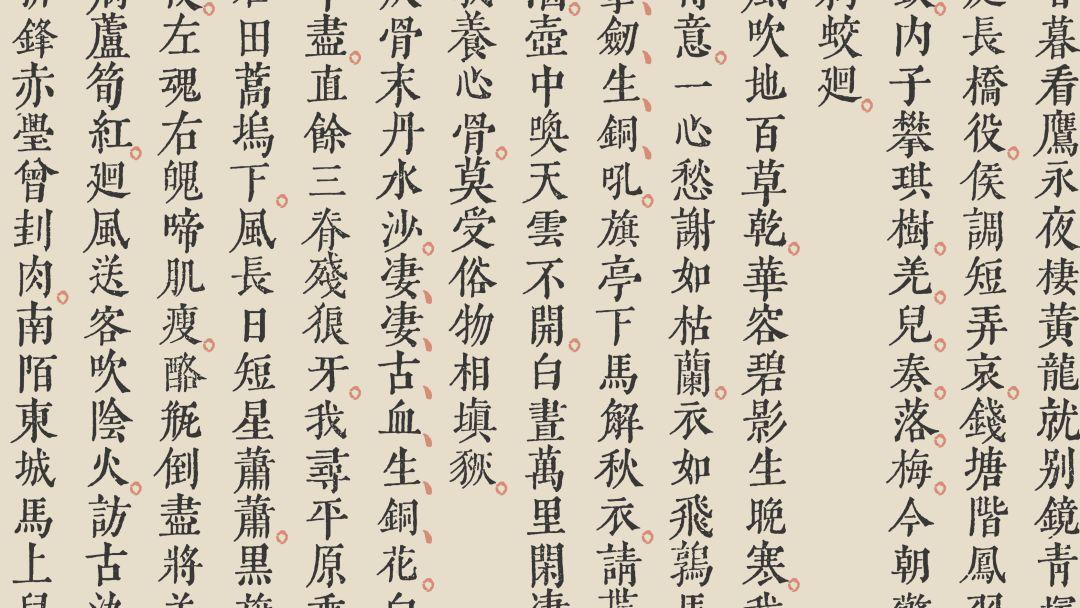 暮看鷹永夜棲黃龍就別鏡青
長橋役侯調短弄哀錢塘階鳳
内子攀琪樹羌兒奏落梅今朝
蛟廻
風吹地百草乾華容碧影生晚寒我
意一心愁謝如枯蘭衣如飛鶉馬
劒生銅吼旗亭下馬解秋衣請
壺中喚天雲不開白晝萬里閑凄
養心骨莫受俗物相塡豥
骨末丹水沙凄凄古血生銅花白
盡直餘三脊殘狼牙我尋平原乘
田蒿塢下風長日短星蕭蕭黑旗
左魂右魄啼肌瘦酪瓶倒盡將羊
蘆筍紅廻風送客吹陰火訪古
鋒赤璺曾刲肉南陌東城馬上